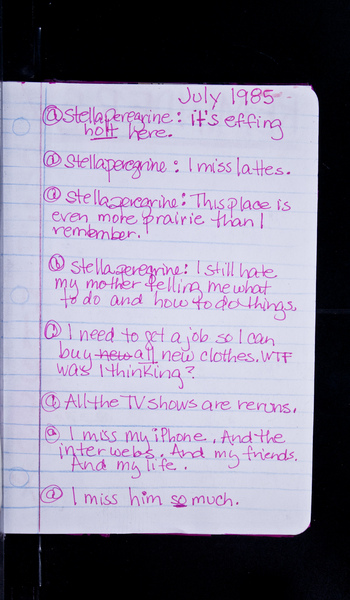 July 1985
@stellaperegrine: it's effing
hott here.
@stellaperegrine: I miss lattes.
@stellaperegrine: This place is
even more prairie than I
remember.
@stellaperegrine: I still hate
my mother telling me what
to do and how to do things.
@ I need to get a job so I can
buy new all new clothes. WTF
was I thinking?
@ All the TV shows are reruns.
@ I miss my iPhone. And the
interwebs. And my friends.
And my life.
@ I miss him so much.